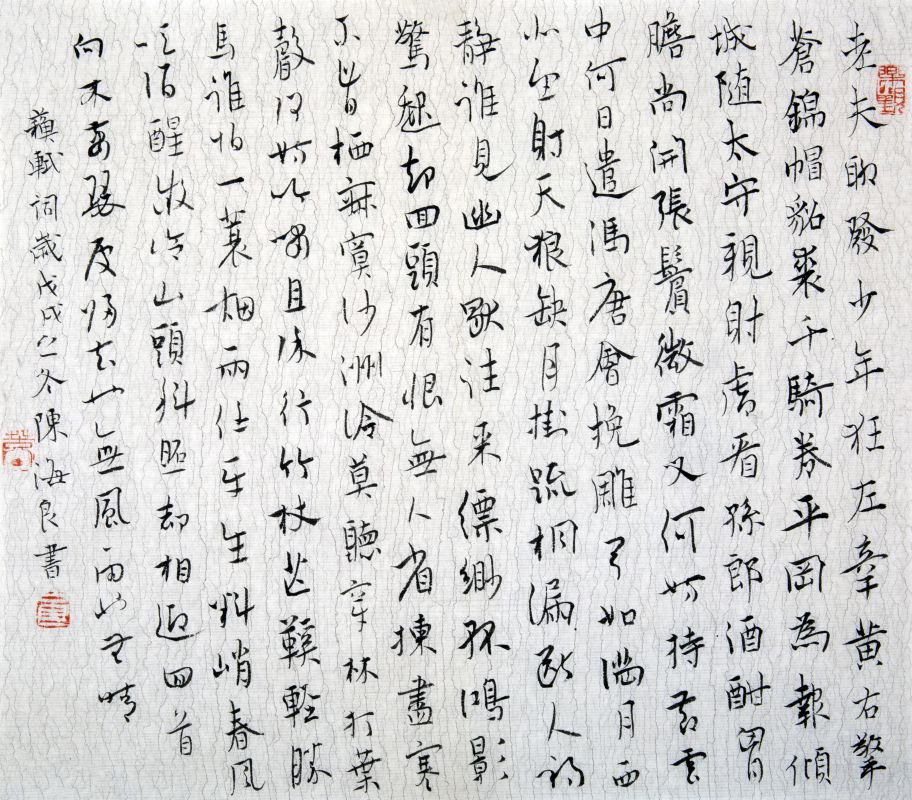 老夫聊發少年狂左牽黃右擎
蒼錦帽貂裘千騎卷平岡為報傾
城随太守親射虎看孫郎酒酣胷
膽尚開張鬢微霜又何妨持節雲
中何日遣馮唐會挽雕弓如滿月西
北望射天狼缺月掛疏桐漏斷人初
靜誰見幽人獨往來縹緲孤鴻影
驚起却回頭有恨無人省揀盡寒
不肯栖寂寞沙洲冷莫聽穿林打葉
聲何妨吟嘯且徐行竹杖芒鞋輕勝
馬誰怕一蓑烟雨任平生料峭春風
吹酒醒微冷山頭斜照却相迎回首
向來蕭瑟處歸去也無風雨也無晴
蘇軾詞歲戊戌之冬陳海良書